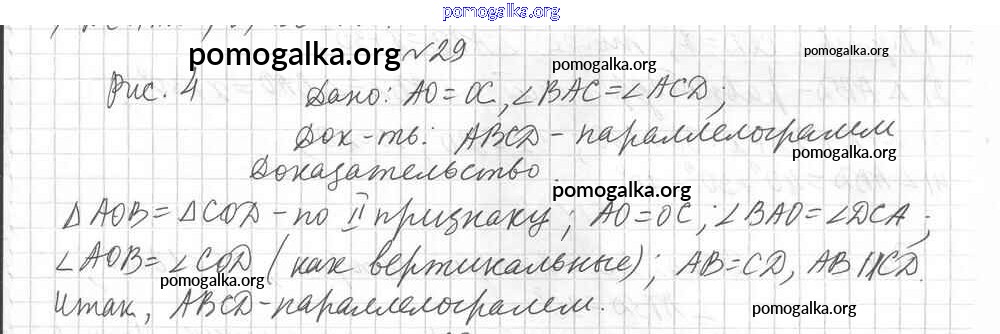 pomogalka.org
№29
pomogalka.org
pomogalka.org
pomogalka.org
Рис. 4 Дано: AO=OC, ∠BAC=∠ACD;
pomogalka.org
Док-ть: ABCD - параллелограмм
pomogalka.org
Доказательство
pomogalka.org
△AOB=△COD - по II признаку; AO=OC; ∠BAO=∠DCA;
∠AOB=∠COD (как вертикальные); AB=CD, AB||CD.
pomogalka.org
Итак, ABCD - параллелограмм.
pomogalka.org